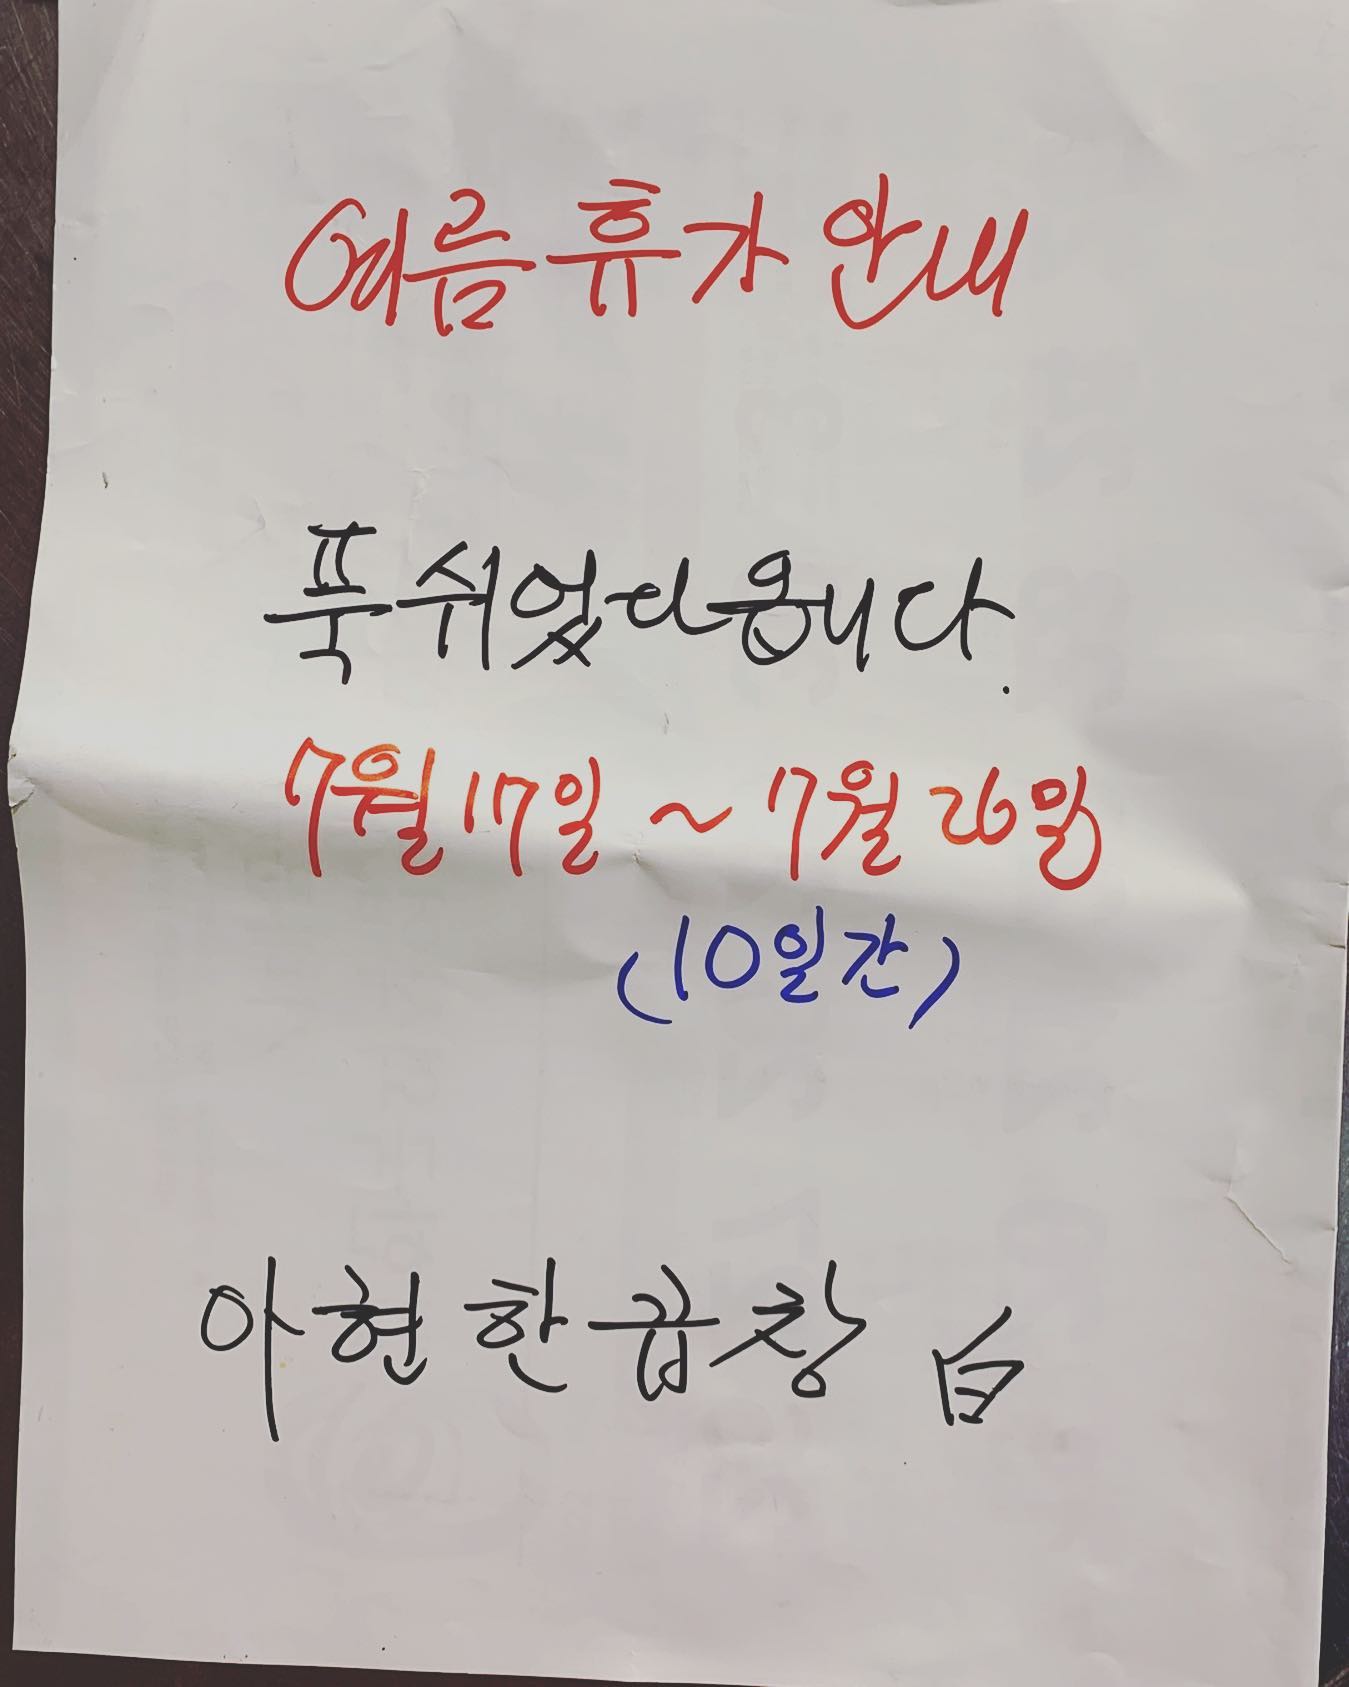 여름 휴가 안내
푹 쉬었다 옵니다.
7월 17일 ~ 7월 26일
(10일간)
아현 한곱창 白